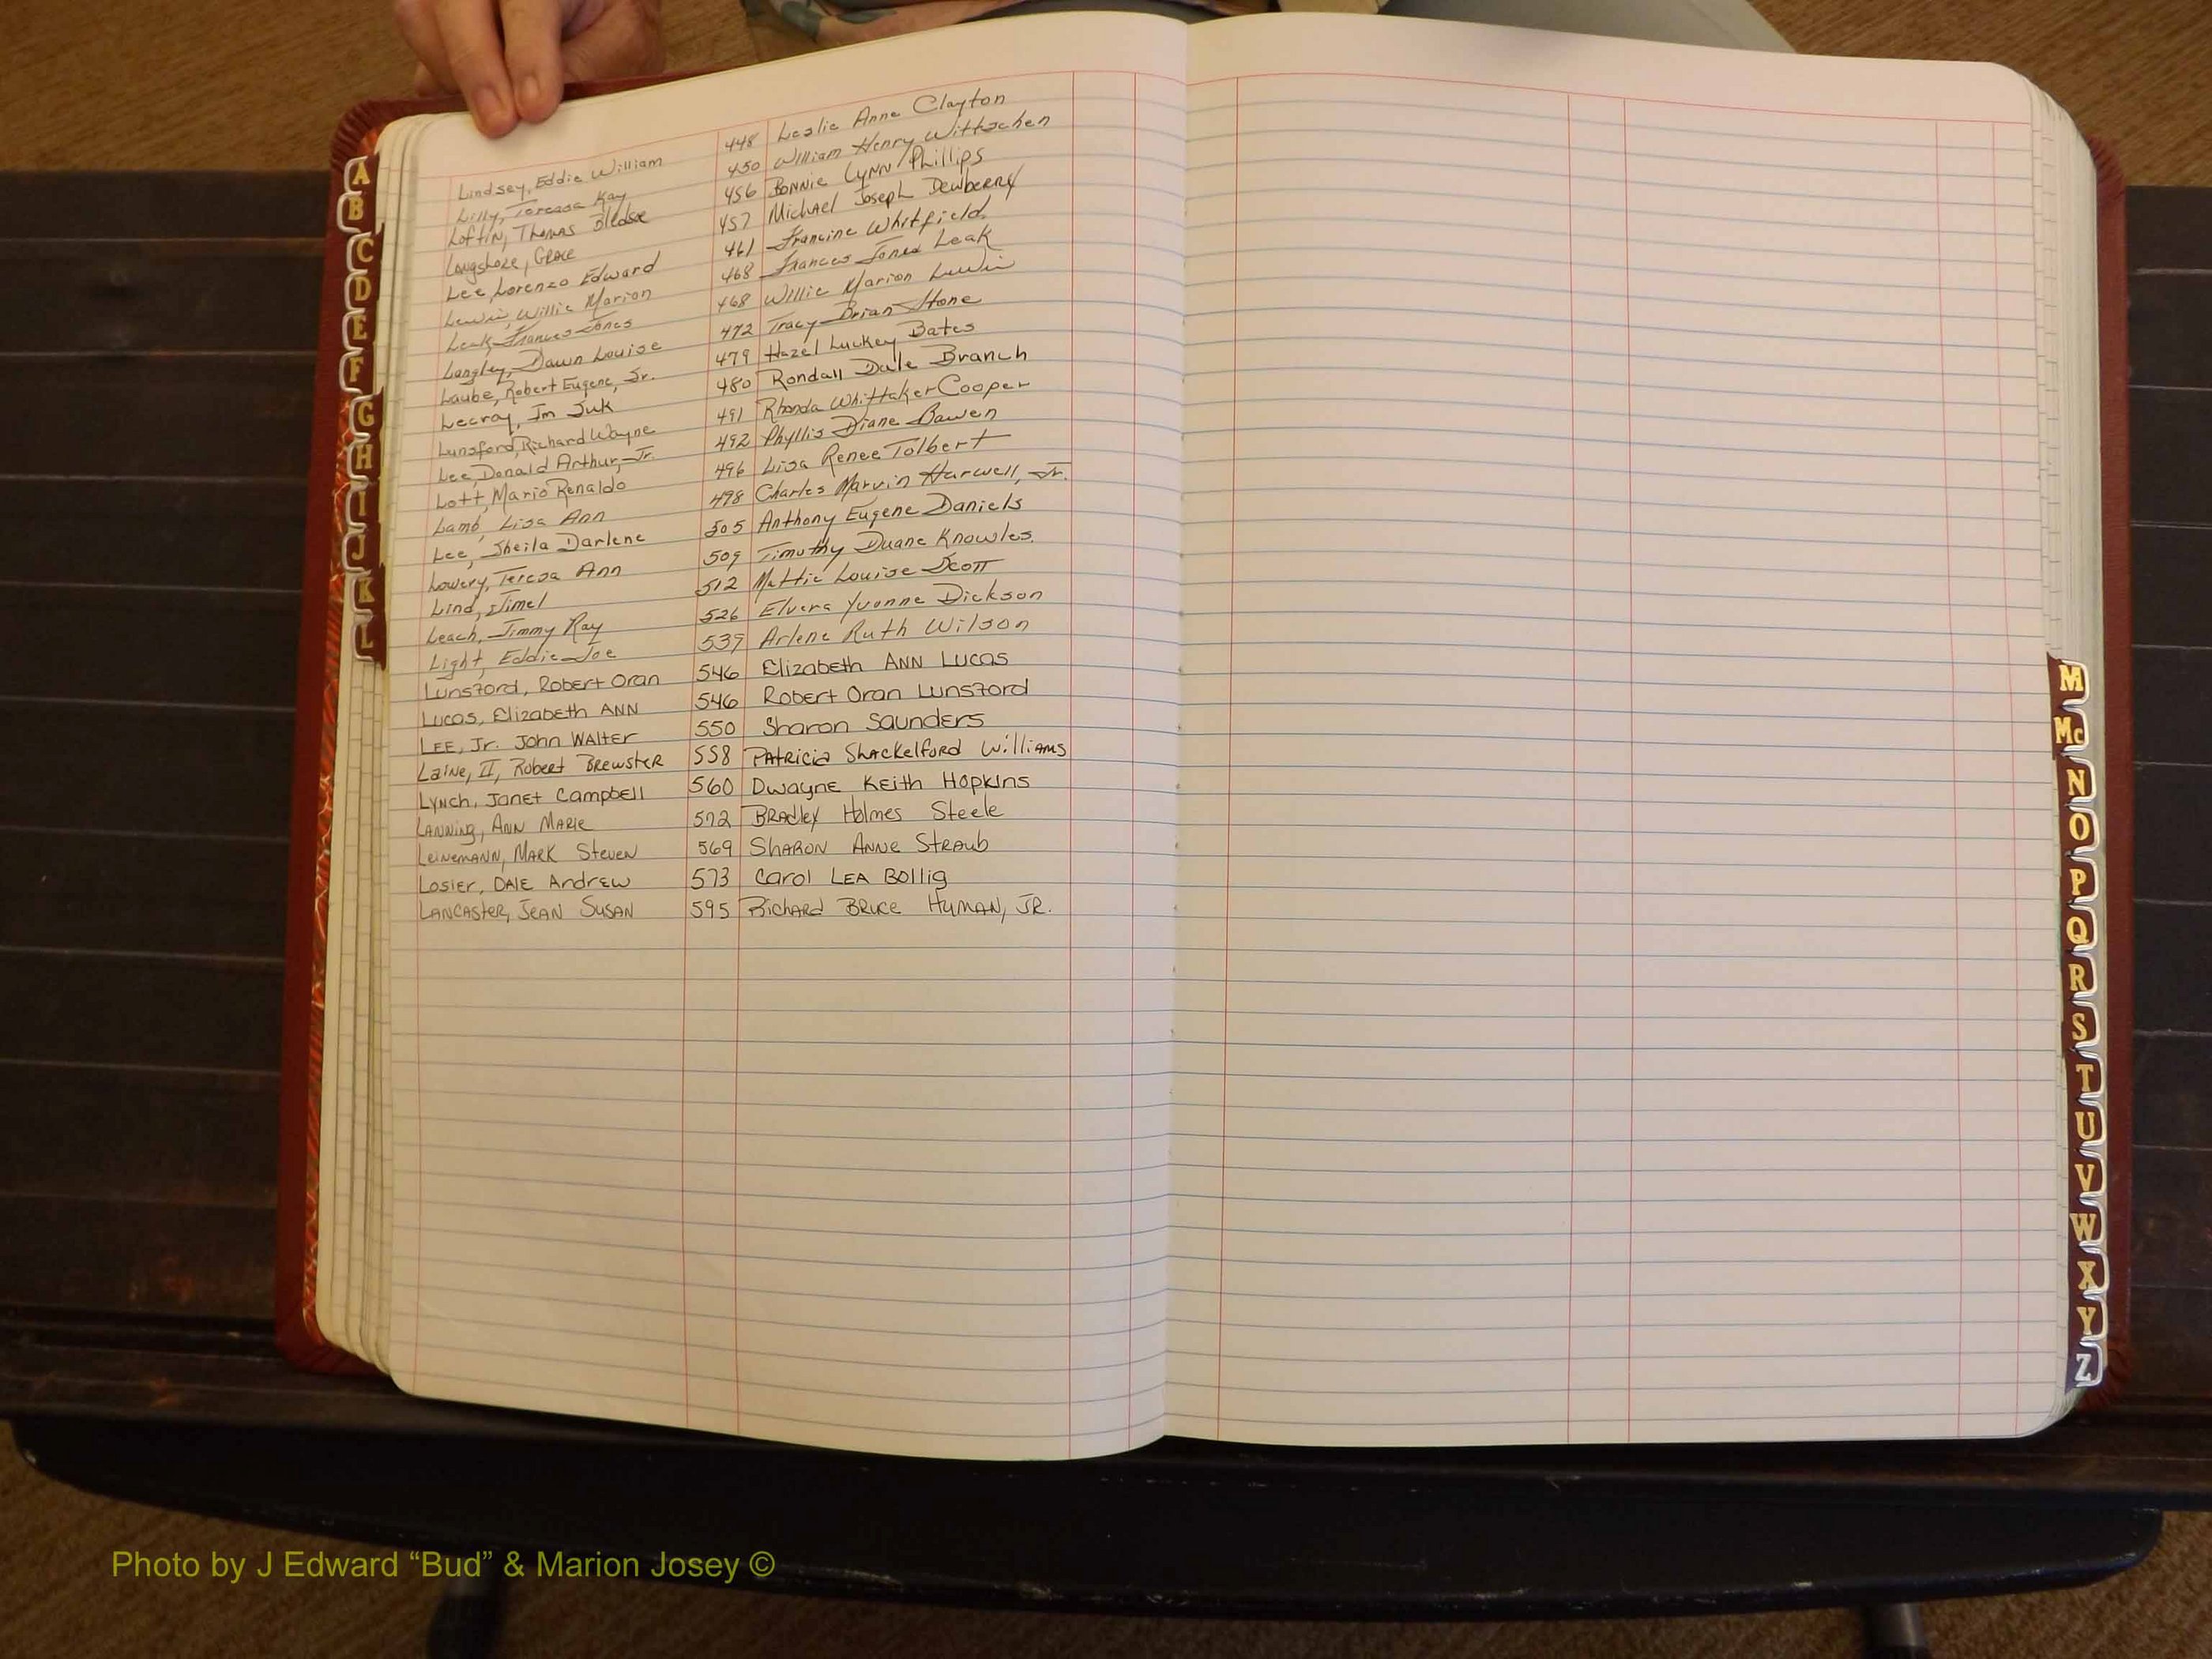 Lindsey, Eddie William 448 Leslie Anne Clayton
Lilly, Teressa Kay 450 William Henry Wittschen
Loftin, Thomas Bledsoe 456 Bonnie Lynn Phillips
Longshore, Grace 457 Michael Joseph Dewberry
Lee, Lorenzo Edward 461 Francine Whitfield
Lewis, Willie Marion 468 Frances Jones Leak
Leak, Frances Jones 468 Willie Marion Lewis
Langley, Dawn Louise 472 Tracy Brian Stone
Laube, Robert Eugene, Jr. 479 Hazel Luckey Bates
Lecroy, Im Suk 480 Rondall Dale Branch
Lunsford, Richard Wayne 491 Rhonda Whittaker Cooper
Lee, Donald Arthur, Jr. 492 Phyllis Diane Bawen
Lott, Mario Renaldo 496 Lisa Renee Tolbert
Lamb, Lisa Ann 498 Charles Marvin Harwell, Jr.
Lee, Sheila Darlene 505 Anthony Eugene Daniels
Lowery, Teresa Ann 509 Timothy Duane Knowles.
Lind, Jimel 512 Mattie Louise Scott
Leach, Jimmy Ray 526 Elvera Yvonne Dickson
Light, Eddie Joe 539 Arlene Ruth Wilson
Lunsford, Robert Oran 546 Elizabeth ANN Lucas
Lucas, Elizabeth ANN 546 Robert Oran Lunsford
LEE, Jr. John Walter 550 Sharon Saunders
Laine, II, Robert Brewster 558 Patricia Shackelford Williams
Lynch, Janet Campbell 560 Dwayne Keith Hopkins
Lanning, Ann Marie 572 Bradley Holmes Steele
Leinemann, Mark Steven 569 Sharon Anne Straub
Losier, Dale Andrew 573 Carol Lea Bollig
Lancaster, Jean Susan 595 Richard Bruce Human, Jr.
A
B
C
D
E
F
G
H
I
J
K
L
M
Mc
N
O
P
Q
R
S
T
U
V
W
X
Y
Z
Photo by J Edward “Bud” & Marion Josey ©